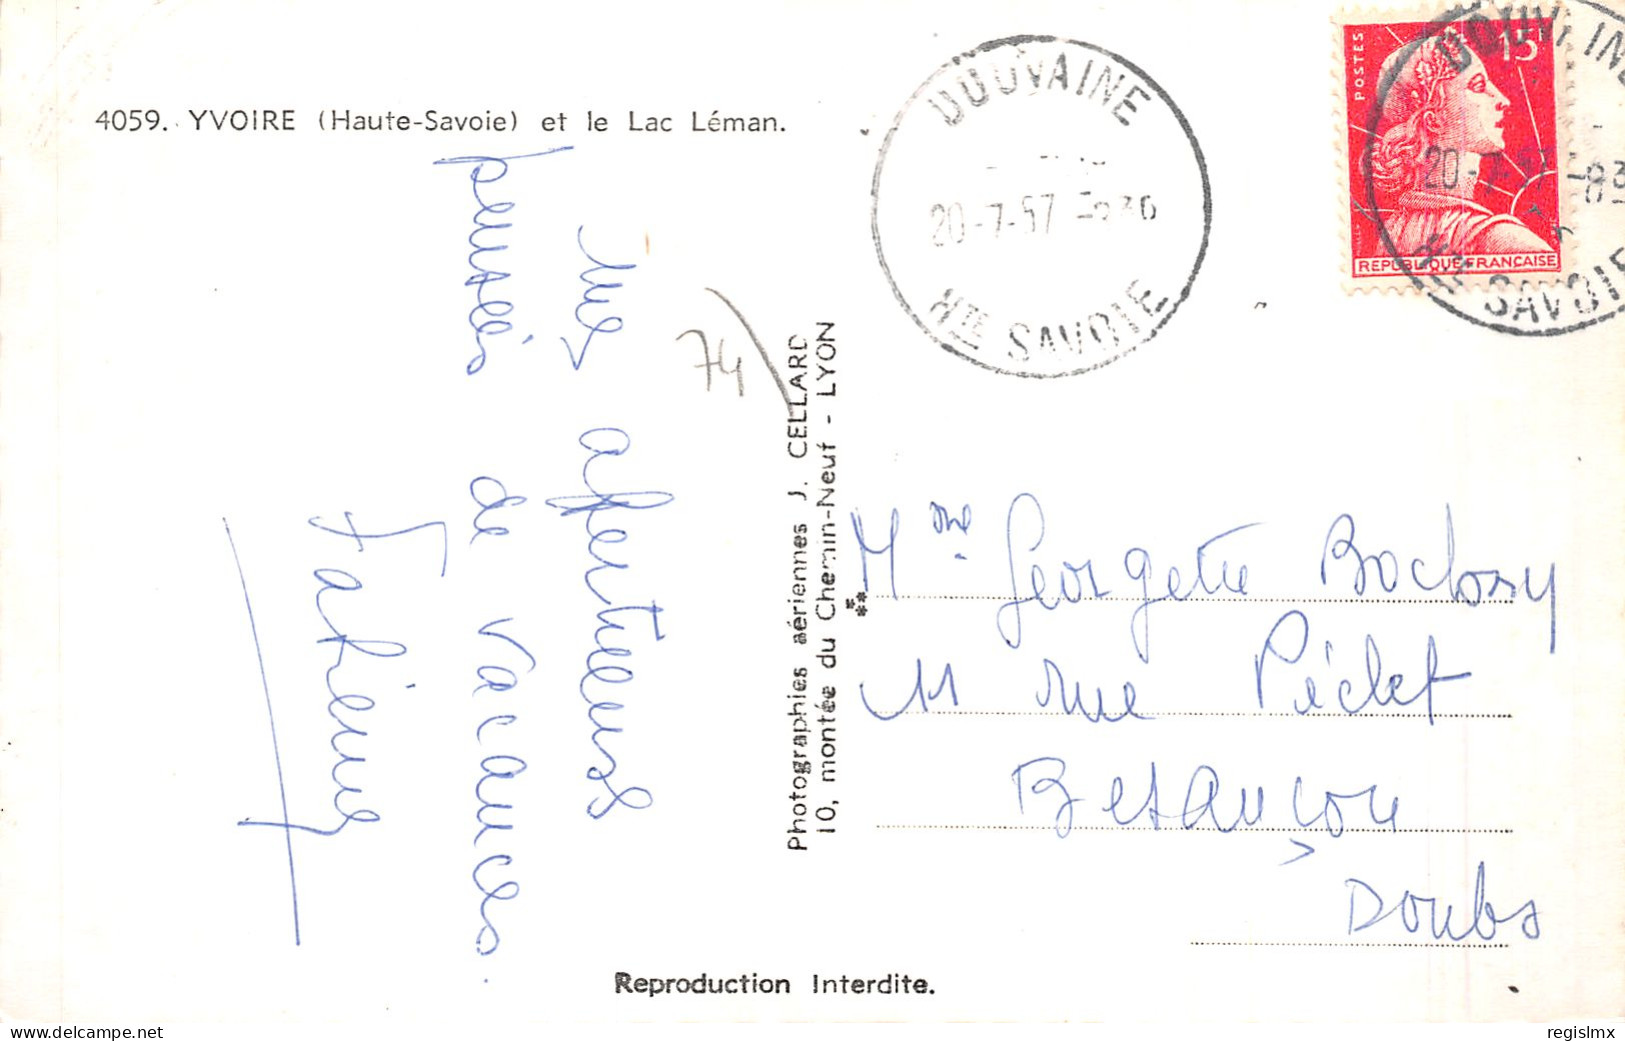 4059. YVOIRE (Haute-Savoie) et le Lac Léman.
Mes affectueuses
pensées de vacances.
74
Photographies aériennes J. CELLARD
10, montée du Chemin-Neuf - LYON
DOUVAINE
20-7-57
HTE SAVOIE
POSTES
15F
REPUBLIQUE FRANÇAISE
DOUVAINE
20-7-57
HTE SAVOIE
Mme Georgette
11 rue Péclet
Besançon
Doubs
Reproduction Interdite.
regislmx
www.delcampe.net